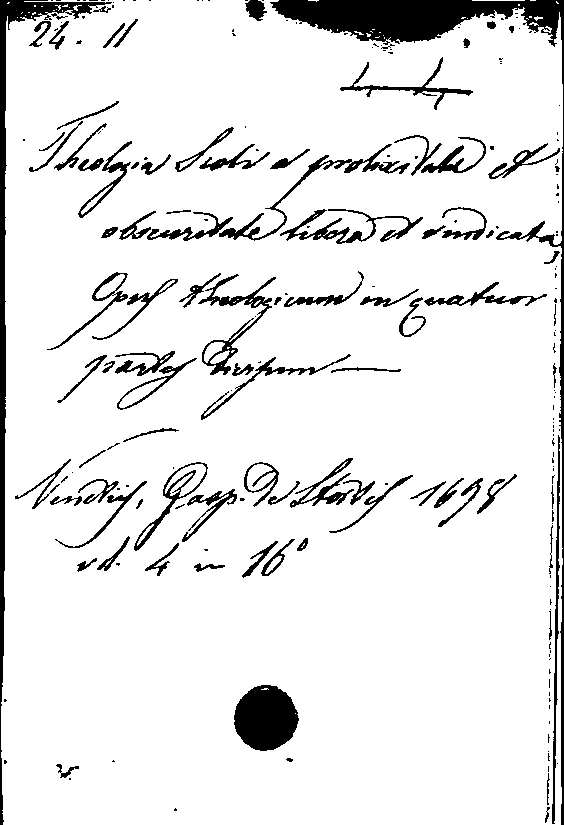 24. 11
4 4
Theologia Scoti a prolixitate et
obscuritate libera et vindicata,
Opus theologicum in quatuor
partes divisum —
Venetiis, Gasp. de Stortis 1698
vol. 4 in 16°